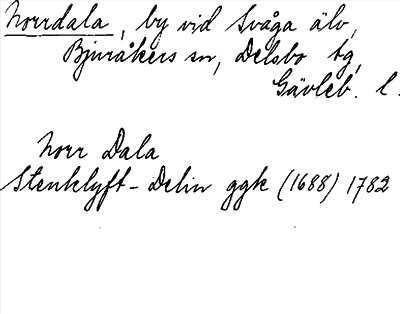 Norrdala, by vid Svåga älv,
Bjuråkers sn, Delsbo tg,
Gävleb. l.
Norr Dala
Stenklyft-Delin ggk (1688) 1782